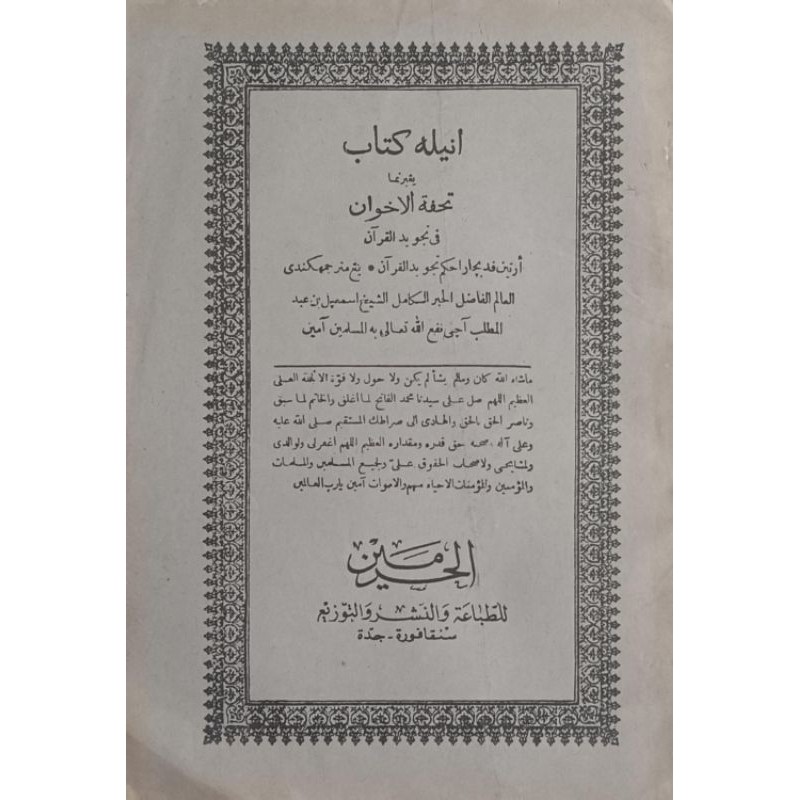 انيله كتاب
يڠبرنما
تحفة الاخوان
فى تجويد القرآن
أرتين فد بچارا حكم تجويد القرآن * يڠ منرجمهكندى
العالم الفاضل الحبر الكامل الشيخ اسمعيل بن عبد
المطلب آچى نفع الله تعالى به المسلمين آمين
ماشاء الله كان ومالم يشألم يكن ولا حول ولا قوة الا بالله العلى
العظيم اللهم صل على سيدنا محمد الفاتح لما أغلق والخاتم لما سبق
وناصر الحق بالحق والهادى الى صراطك المستقيم صلى الله عليه
وعلى آله وصحبه حق قدره ومقداره العظيم اللهم اغفرلى ولوالدى
ولمشايخى ولاصحاب الحقوق علىّ ولجميع المسلمين والمسلمات
والمؤمنين والمؤمنات الاحياء منهم والاموات آمين يارب العالمين
الحرمين
للطّباعَة وَالنّشْر وَالتّوْزيْع
سنقافورة - جدّة